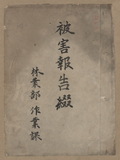 被害報告綴
林業部 作業課